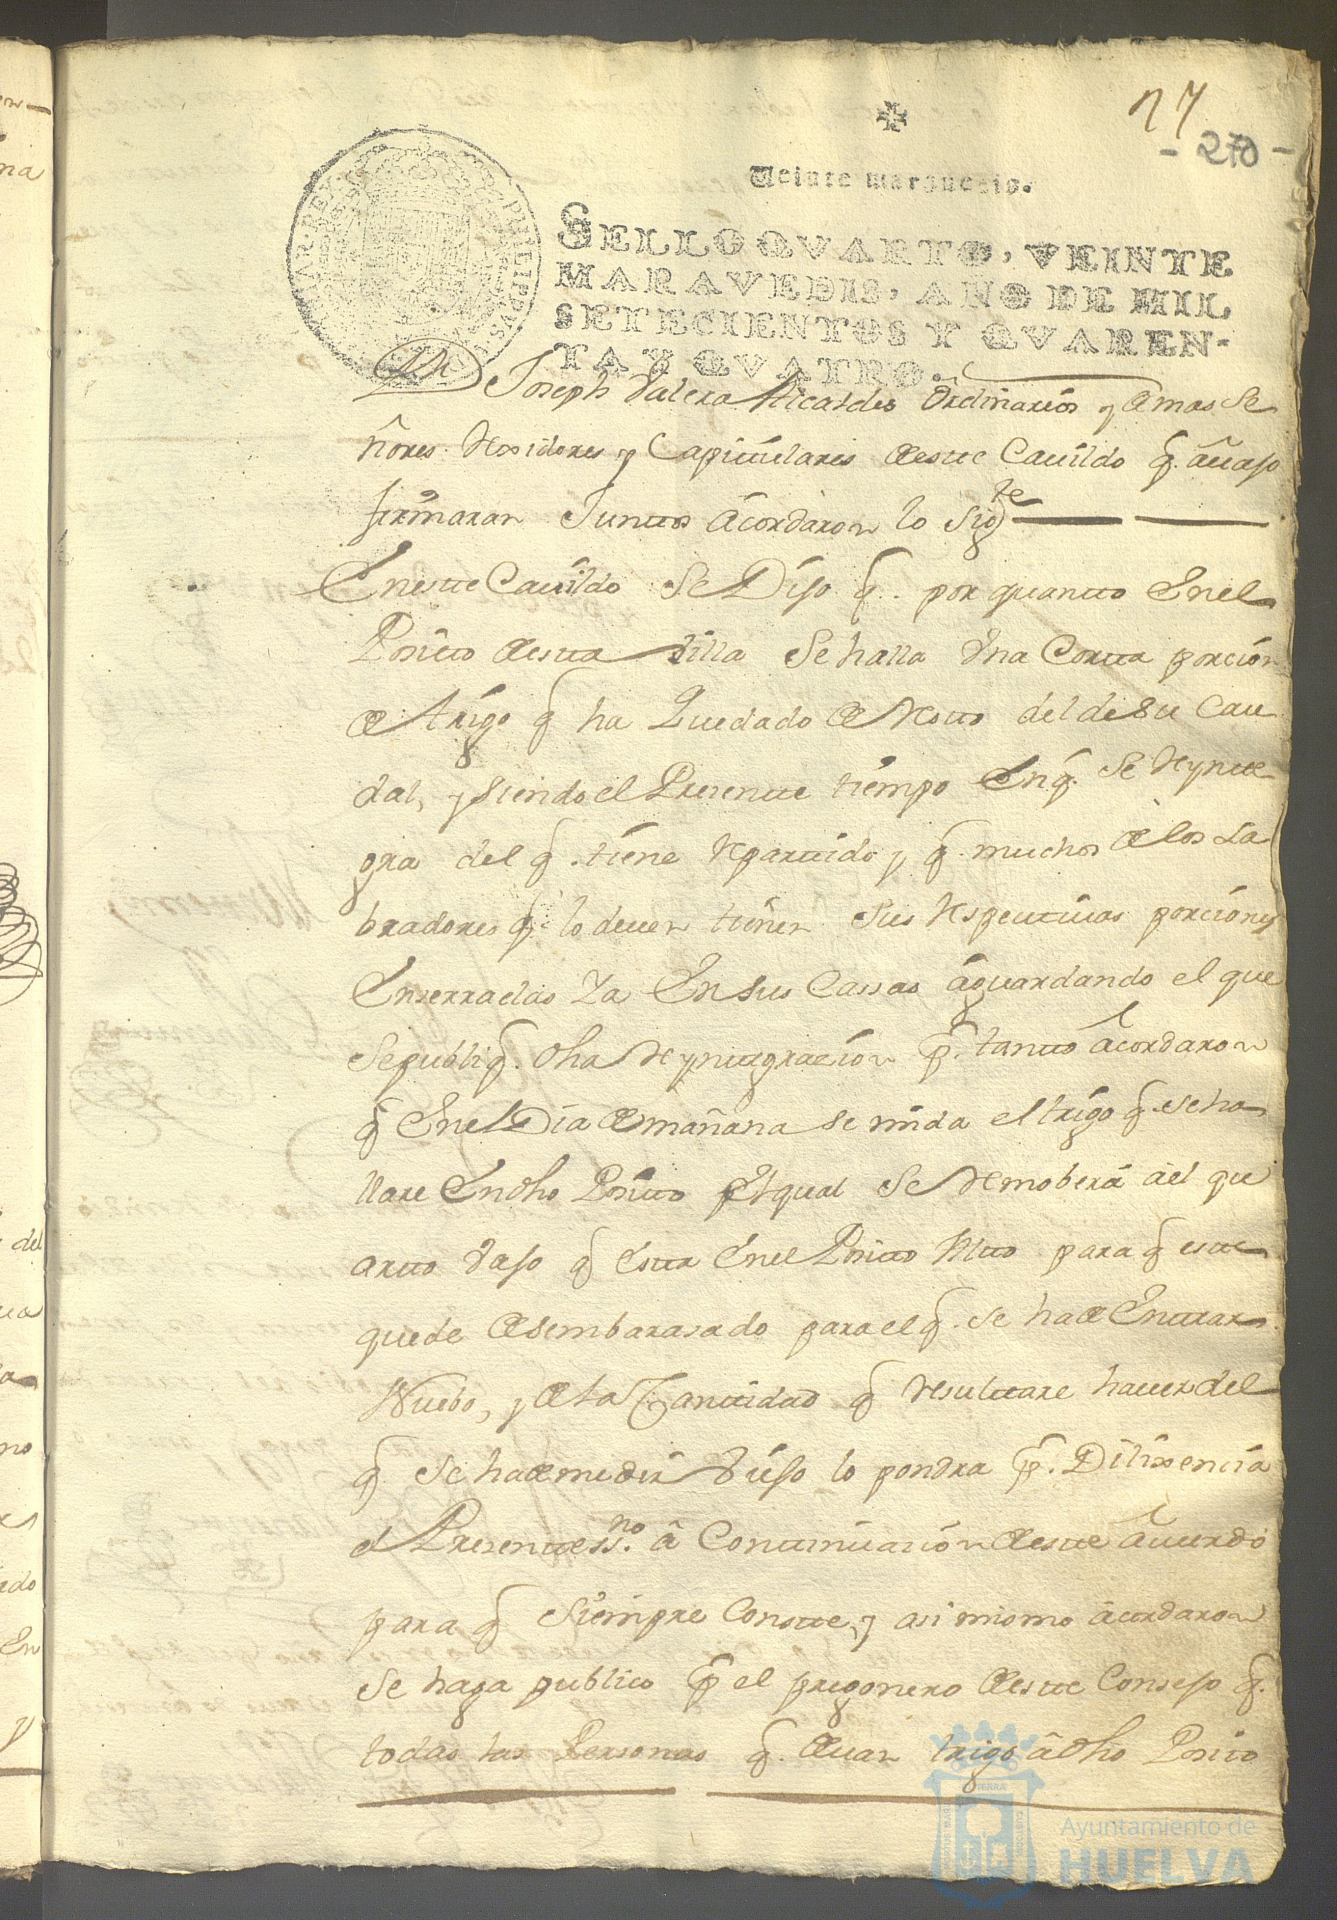 27
- 270 -
Veinte maravedis.
SELLO QVARTO, VEINTE
MARAVEDIS, AÑO DE MIL
SETECIENTOS Y QVAREN-
TA Y QVATRO.
Dn Joseph Valera Alcaldes Ordinarios y demas Se
ñores Rexidores y Capitulares deste Cauildo q. auajo
firmaran Juntos Acordaron lo sigte
En este Cauildo Se Dijo q. por quanto En el
Posito desta Villa Se halla Vna Corta porcion
de trigo q ha Quedado de Resto del de Su Cau
dal, y siendo el Presente tiempo En q. Se Reynte
gra del q. tiene Repartido y q. muchos de los La
bradores q. lo deuen tienen Sus Respectiuas porciones
Enserradas Ya En sus Cassas aguardando el que
Se publiq. dha Reyntegracion p. tanto acordaron
q En el Dia de mañana se mida el trigo q. se ha
llare En dho Posito El qual Se Remobera àel qu
arto Vajo q Esta En el Posito Alto para q este
quede desembarasado para el q. se ha de Entrar
Nuebo, y de la Cantidad q Resultare hauer del
q Se ha de medir Dijo lo pondra p. Dilixencia
el Presente ssno. â Continuacion deste Acuerdo
para q Siempre Conste, y asi mismo acordaron
Se haga publico p el pregonero deste Consejo q.
todas las Personas q. deuan trigo â dho Posito
Ayuntamiento de
HUELVA